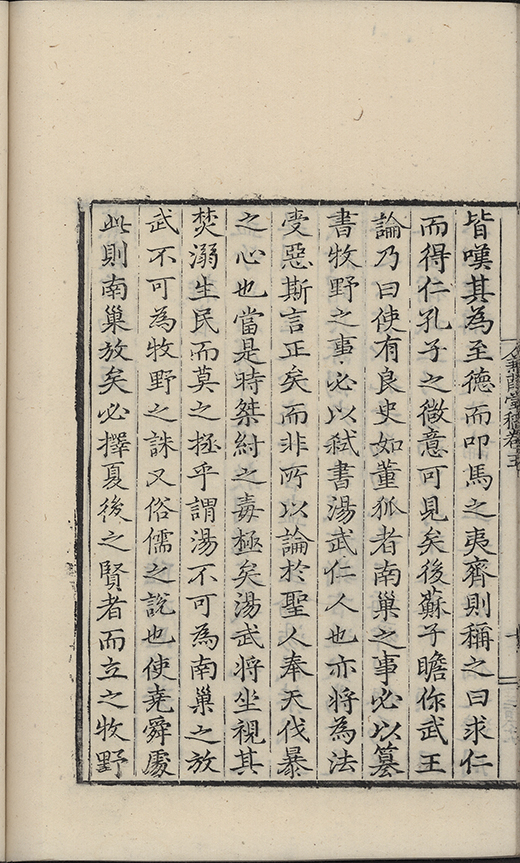 皆嘆其為至德而叩馬之夷齊則稱之曰求仁
而得仁孔子之微意可見矣後蘇子瞻作武王
論乃曰使有良史如董狐者南巢之事必以篡
書牧野之事必以弒書湯武仁人也亦將為法
受惡斯言正矣而非所以論於聖人奉天伐暴
之心也當是時桀紂之毒極矣湯武將坐視其
焚溺生民而莫之拯乎謂湯不可為南巢之放
武不可為牧野之誅又俗儒之說也使堯舜處
此則南巢放矣必擇夏後之賢者而立之牧野